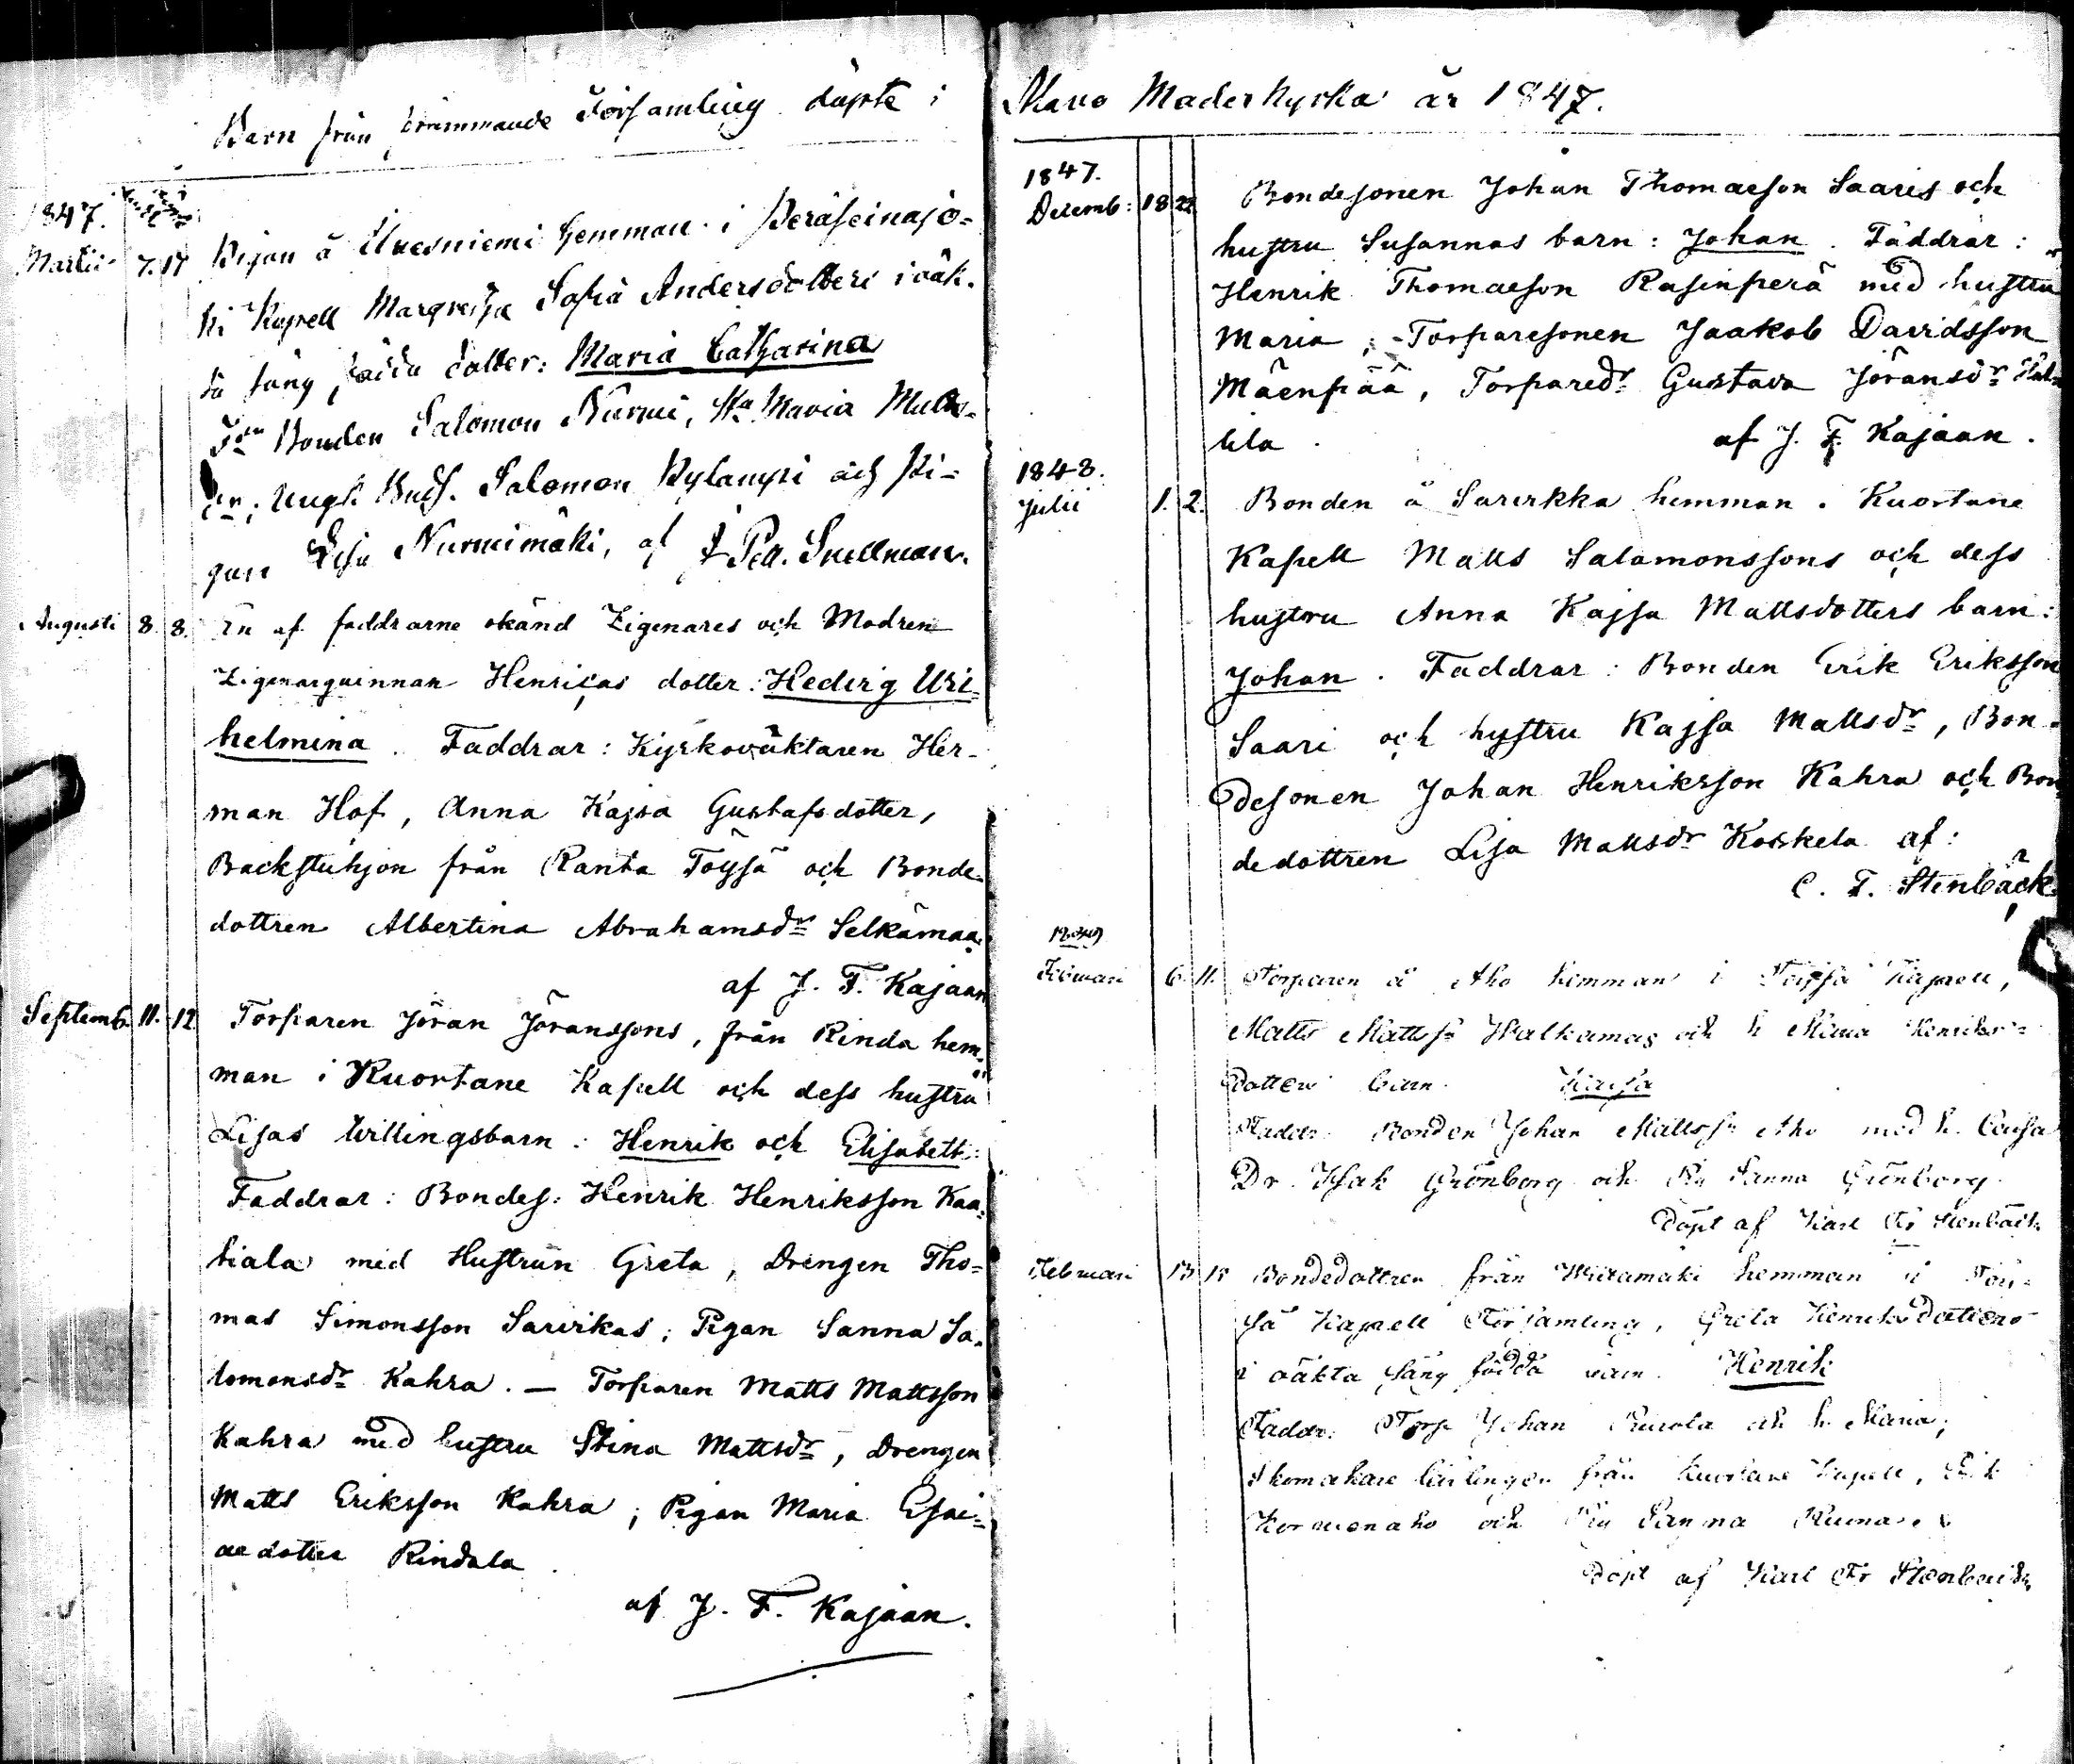 Barn från främmande Församling döpte i
1847.
Martii 7. 17 Pigan å Uuesniemi hemman i Peräseinajo-
ki Kapell Margretha Sofia Andersdotters i oäk-
ta säng födda dotter: Maria Catharina
Bonden Salomon Nurmi, Hu Maria
Ungk Salomon Kylanpä och Pi-
gan Lisa Nurmimäki, af J Ped. Snellman.
Augusti 8. 8. En af faddrarne okänd Zigenares och Modren
Zigenarquinnan Henricas dotter: Hedvig Wil-
helmina. Faddrar: Kyrkoväktaren Her-
man Hof, Anna Kajsa Gustafsdotter,
Backstuhjon från Ranta Töysä och Bonde-
dottren Albertina Abrahamsdr Selkämaa.
af J. F. Kajaan
Septemb. 11. 12 Torparen Jöran Jöranssons, från Rinda hem-
man i Kuortane Kapell och dess hustru
Lisas tvillingsbarn: Henrik och Elisabett:
Faddrar: Bondes: Henrik Henriksson Kaa-
tiala med Hustrun Greta, Drengen Tho-
mas Simonsson Sarvikas; Pigan Sanna Sa-
lomonsdr Kahra. — Torparen Matts Mattsson
Kahra med hustru Stina Mattsdr, Drengen
Matts Eriksson Kahra; Pigan Maria Esai-
aedotter Rindala.
af J. F. Kajaan.
Alavo Moderkyrka år 1847.
1847.
Decemb: 18 22 Bondesonen Johan Thomaeson Saaris och
hustru Susannas barn: Johan. Faddrar:
Henrik Thomaeson Rasinperä med hustru
Maria, Torparesonen Jaakob Davidsson
Mäenpää, Torparedr Gustava Jöransdr
lila. af J. F. Kajaan.
1848.
Julii 1. 2. Bonden å Sarvikka hemman i Kuortane
Kapell Matts Salomonssons och dess
hustru Anna Kajsa Mattsdotters barn:
Johan. Faddrar: Bonden Erik Eriksson
Saari och hustru Kajsa Mattsdr, Bon-
desonen Johan Henriksson Kahra och Bon-
dedottren Lisa Mattsdr Koskela af:
C. F. Stenbäck.
1849
Februari 6. 11. Torparen å Aho hemman i Töysä Kapell,
Matts Mattss Walkamas och h Maria Henriks-
dotters barn Kaisa
Faddr. Bonden Johan Mattss Aho med h. Caisa
Dr. Isak Grönberg och Pig Sanna Grönberg
Döpt af Karl Fr Stenbäck
Februari 13 15 Bondedottren från hemman i Töy-
sä Kapell Församling, Greta Henriksdotters
i oäkta säng födda barn Henrik
Faddr. Torp Johan och h. Maria;
Skomakare lärlingen från Kuortane Kapell,
och Pig Sanna
Döpt af Karl Fr Stenbäck